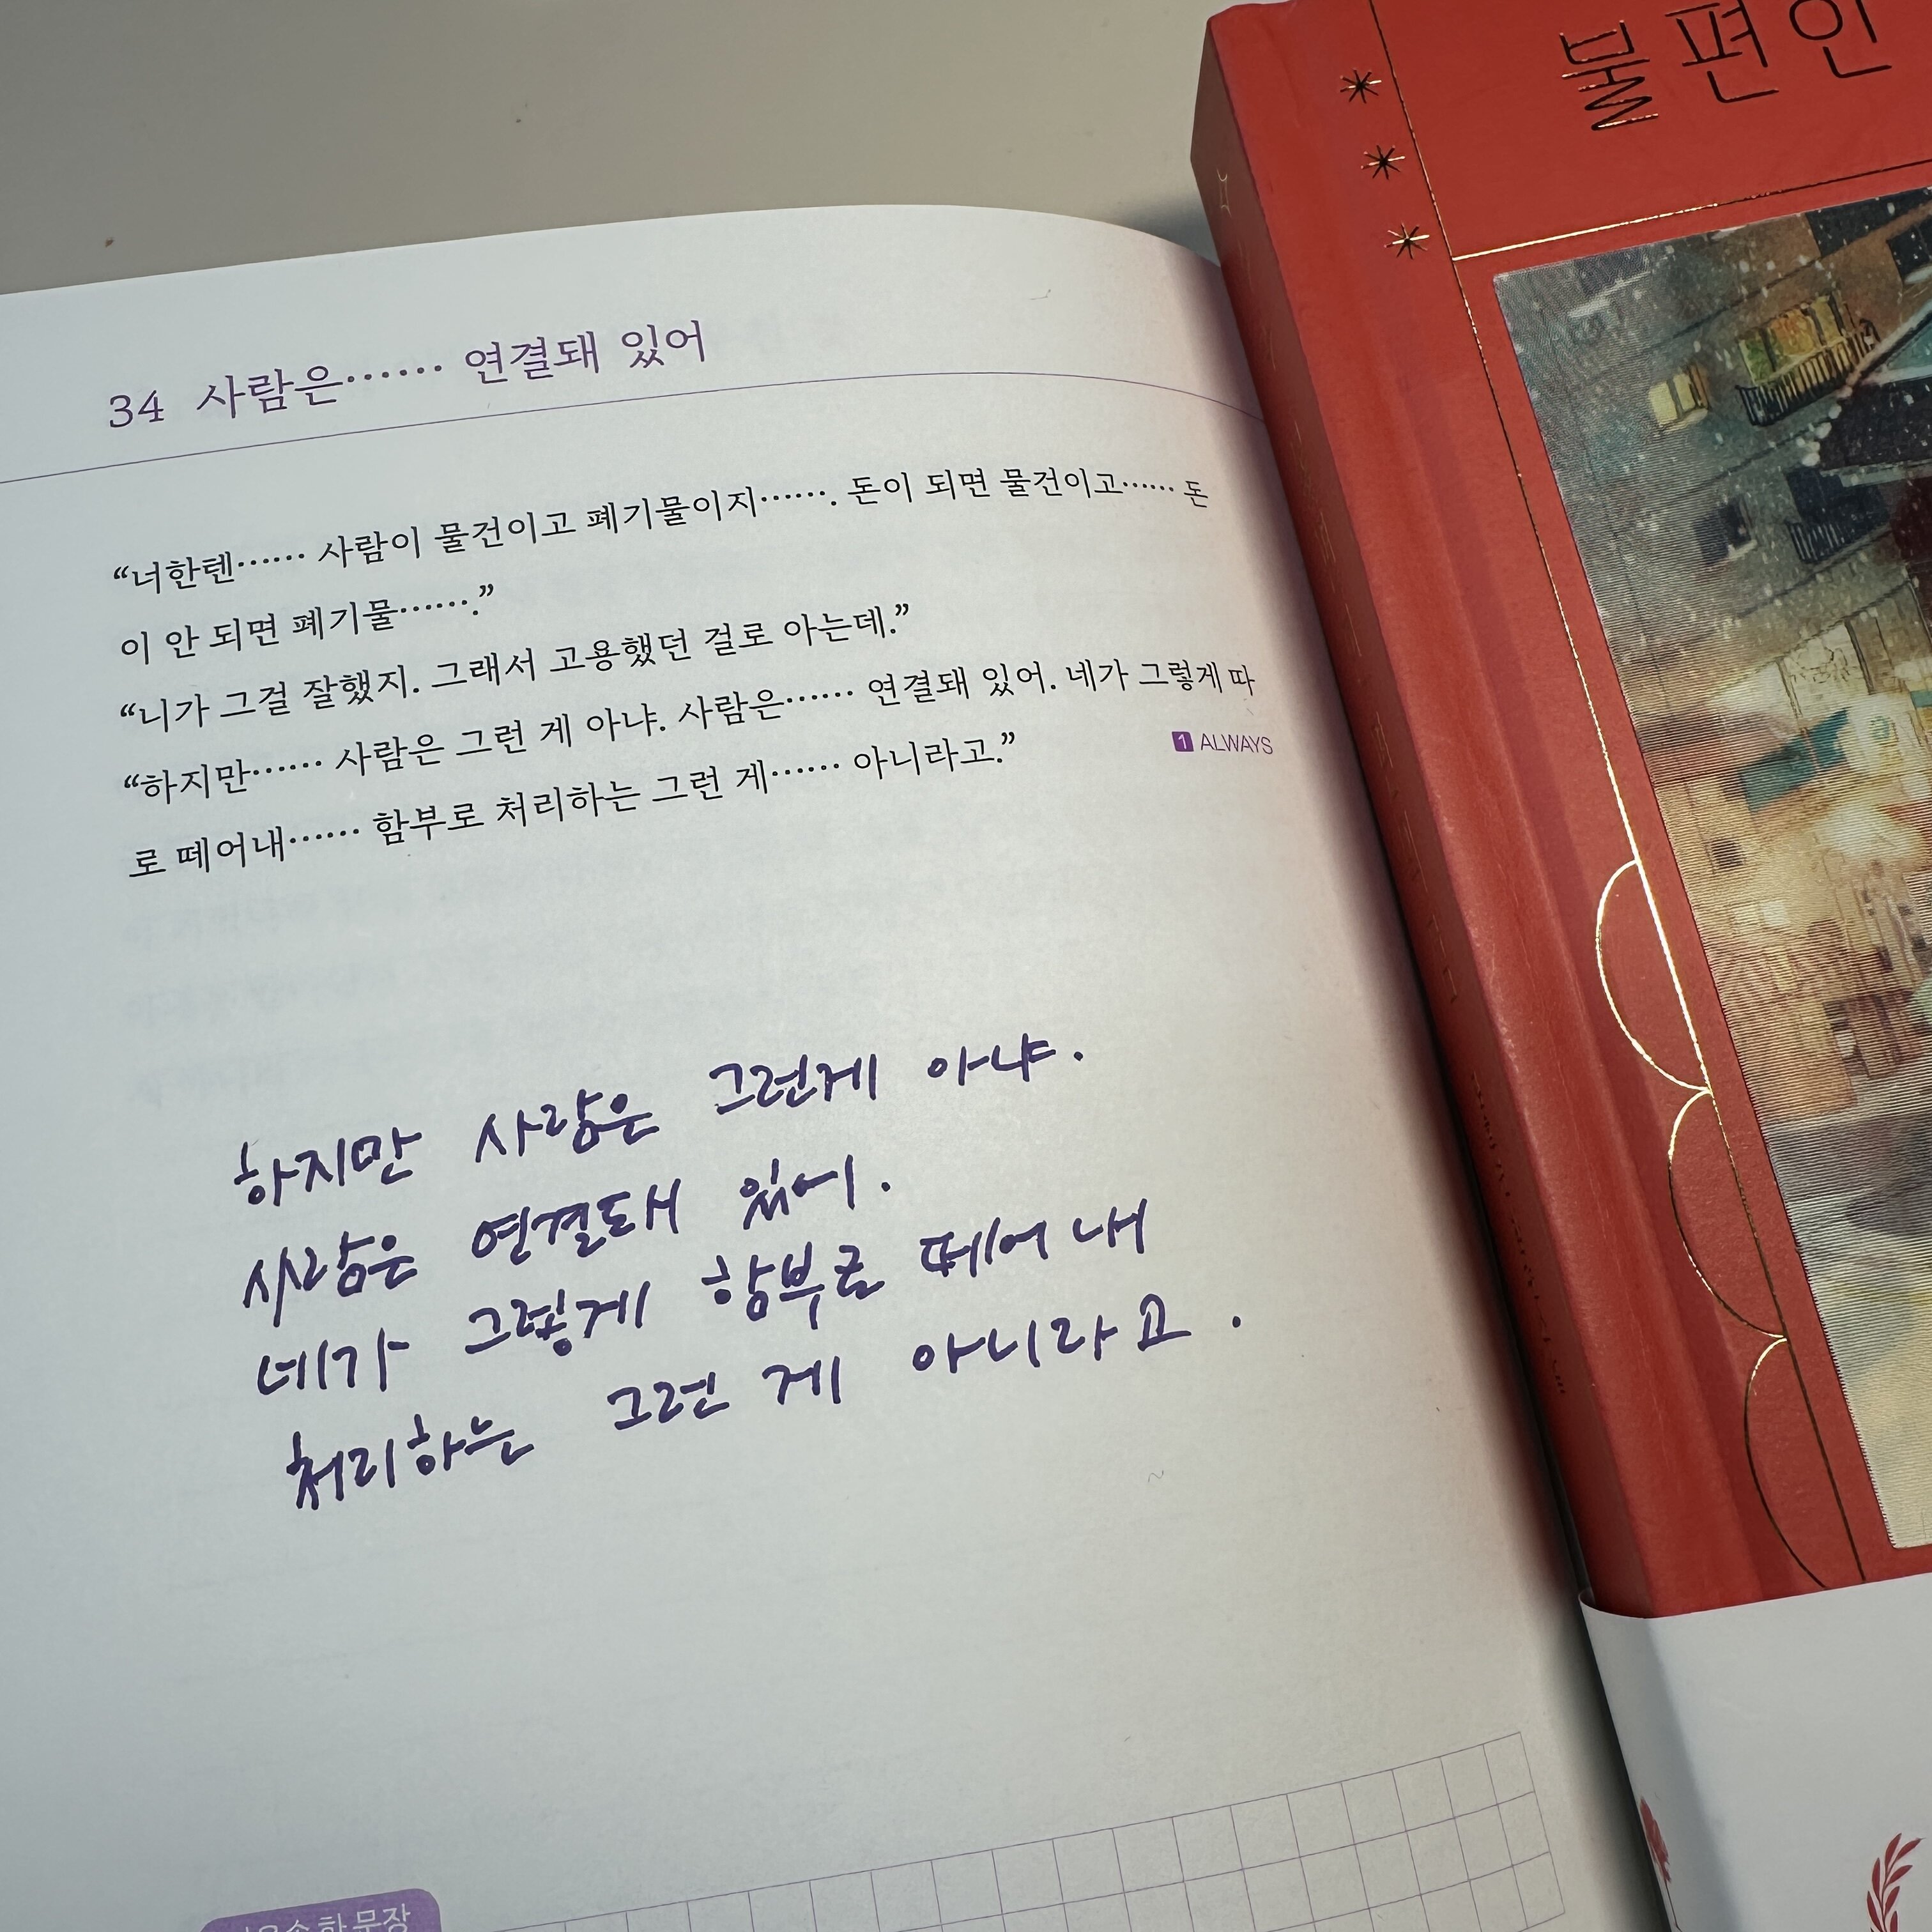 불편인
34 사람은…… 연결돼 있어
“너한텐…… 사람이 물건이고 폐기물이지……. 돈이 되면 물건이고…… 돈
이 안 되면 폐기물…….”
“니가 그걸 잘했지. 그래서 고용했던 걸로 아는데.”
“하지만…… 사람은 그런 게 아냐. 사람은…… 연결돼 있어. 네가 그렇게 따
로 떼어내…… 함부로 처리하는 그런 게…… 아니라고.”
1 ALWAYS
하지만 사람은 그런게 아냐.
사람은 연결돼 있어.
네가 그렇게 함부로 떼어내
처리하는 그런 게 아니라고.
한 문장